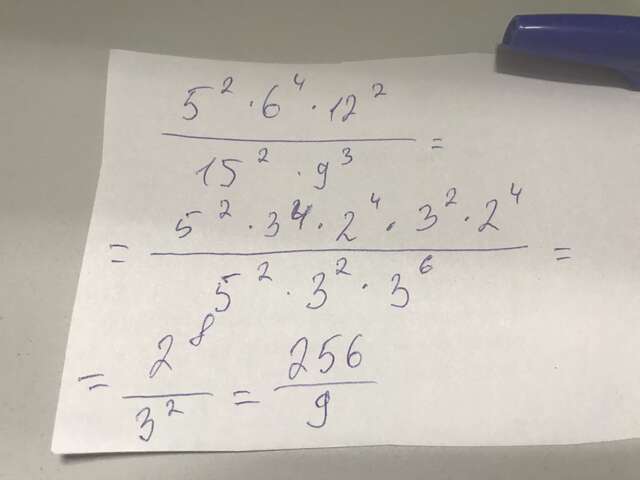 5² · 6⁴ · 12²
15² · 9³ =
= 5² · 3⁴ · 2⁴ · 3² · 2⁴
5² · 3² · 3⁶ =
= 2⁸ / 3² = 256 / 9